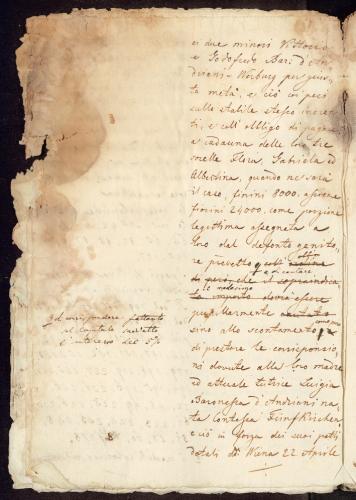 ei due minori Vittorio
e Godofredo Bar: d'An
driani-Werburg per giu
ta metà, e ciò in però
sullo stabile stesso ineren
ti, e coll'obbligo di pagare
a cadauna delle loro So
relle Flora, Gabriela ed
Albertina, quando ne sarà
il caso, fiorini 8000, assieme
fiorini 24000, come porzione
legittima assegnata a
loro dal defonto genito
re predetto, coll'
di però, che il sopraindica
to importo dovrà essere
lo medesime
pupillarmente cautato
sino allo scontamento
di prestare le corrisponsio
ni dovute alla loro madre
ed attuale tutrice Luigia
Baronessa d'Andriani na
ta Contessa Fünfkirchen
e ciò in forza dei suoi patti
dotali di Viena 22 Aprile
di corrispondere frattanto
sul Capitale suddetto
l'interesse del 5%